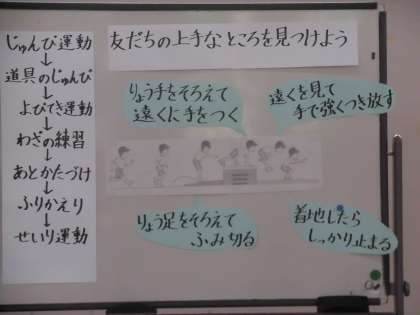 じゅんび運動
↓
道具のじゅんび
↓
よびてき運動
↓
わざの練習
↓
あとかたづけ
↓
ふりかえり
↓
せいり運動
友だちの上手なところを見つけよう
りょう手をそろえて
遠くに手をつく
遠くを見て
手で強くつき放す
りょう足をそろえて
ふみ切る
着地したら
しっかり止まる